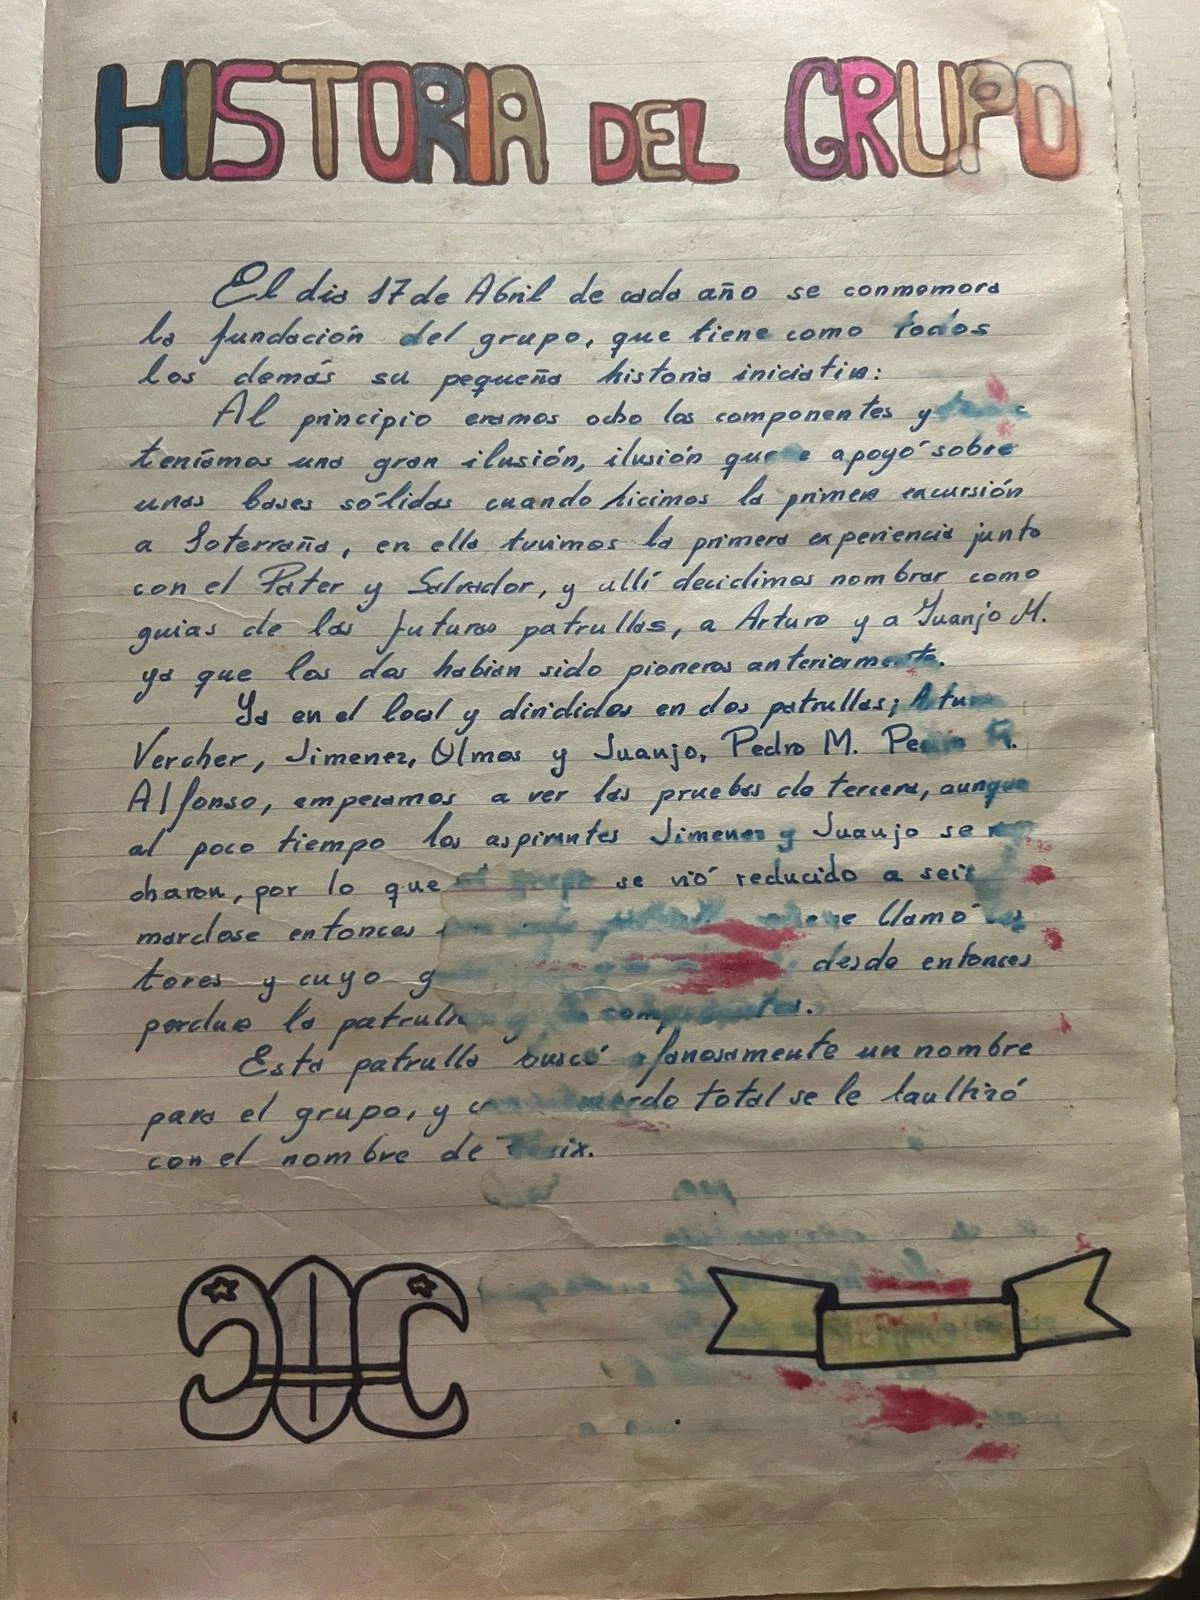 HISTORIA DEL GRUPO
El dia 17 de Abril de cada año se conmemora
la fundación del grupo, que tiene como todos
los demás su pequeña historia iniciativa:
Al principio eramos ocho los componentes y
teníamos una gran ilusión, ilusión que apoyó sobre
unas bases sólidas cuando hicimos la primera excursión
a Soterraña, en ella tuvimos la primera experiencia junto
con el Pater y Salvador, y allí decidimos nombrar como
guias de las futuras patrullas, a Arturo y a Juanjo M.
ya que los dos habian sido pioneros anteriormente.
Ya en el local y divididos en dos patrullas; Arturo
Vercher, Jimenez, Olmos y Juanjo, Pedro M.
Alfonso, empezamos a ver las pruebas de tercera, aunque
al poco tiempo los aspirantes Jimenez y Juanjo se
charon, por lo que el grupo se vió reducido a seis
mardose entonces se llamó
tores y cuyo desde entonces
perdura la patrulla y componentes.
Esta patrulla buscó afanosamente un nombre
para el grupo, y acuerdo total se le baultizó
con el nombre de Fenix.